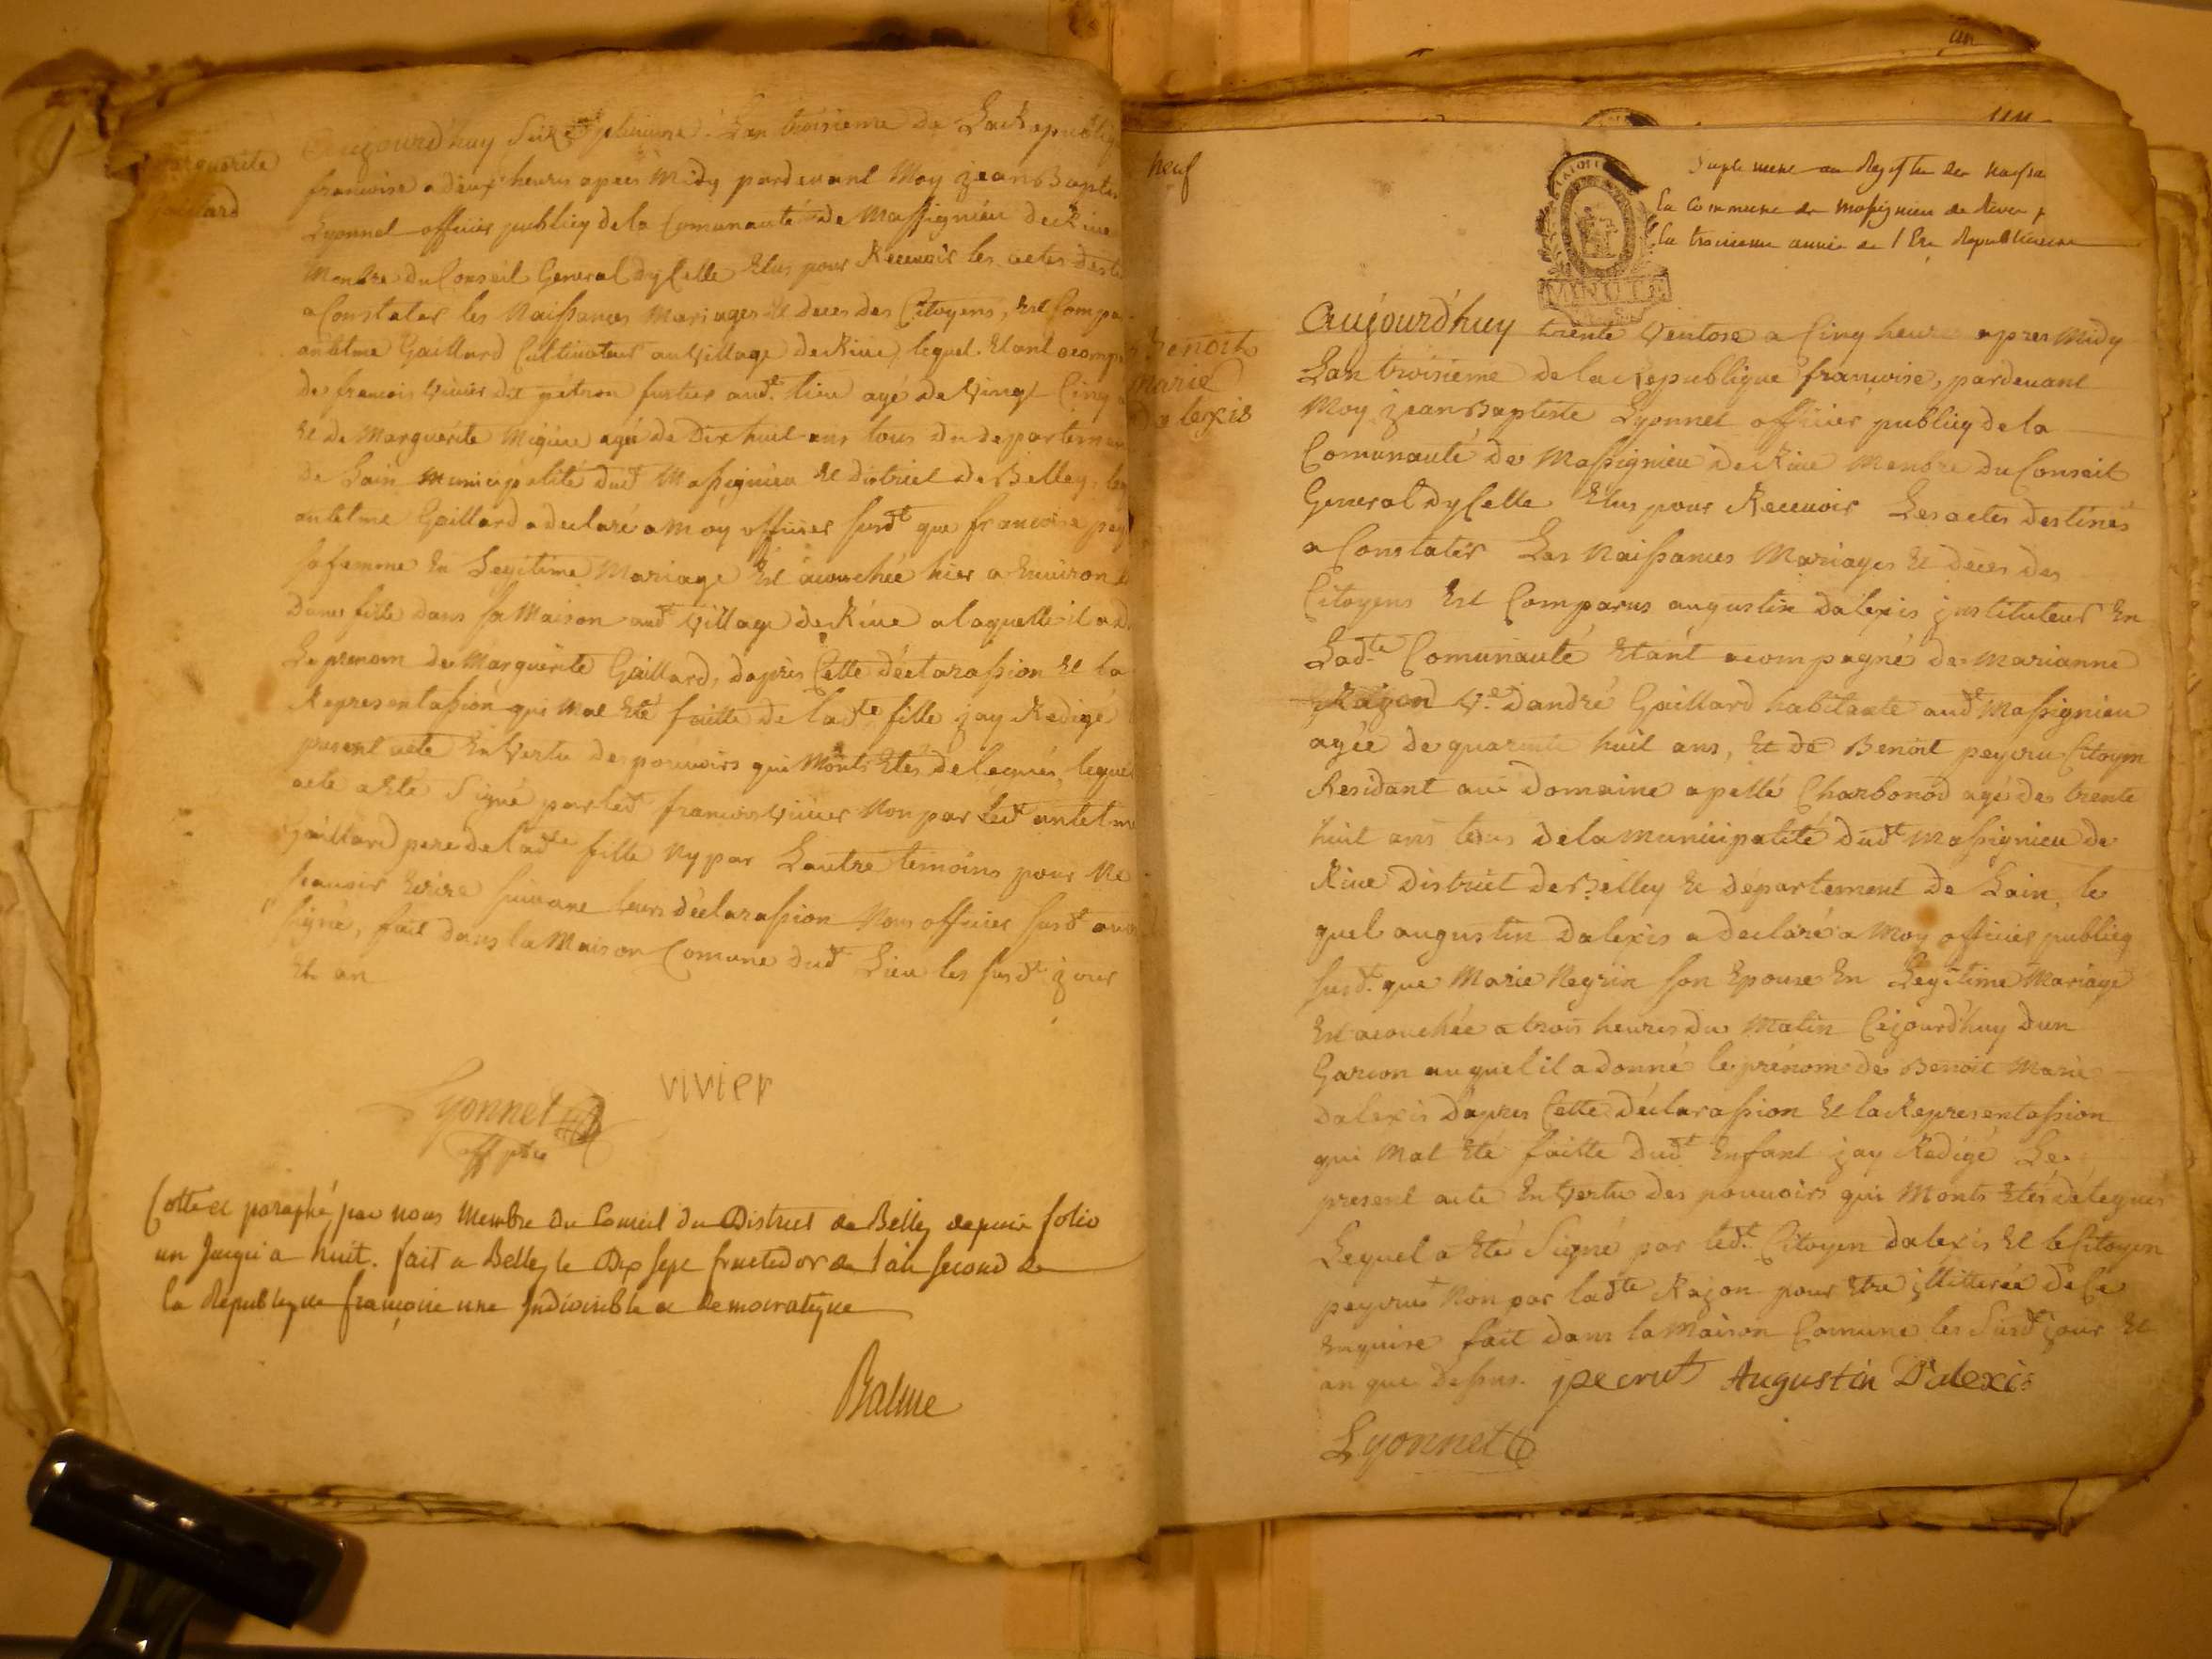 Marguerite
Gaillard
Aujourd'huy Seize pluviose Lan troisieme de La Republiq
francoise a deux heures apres Midy pardevant Moy jean Baptis
Lyonnel officier publicq de la Comunauté de Massignieu de Rive
Menbre du Conseil General dycelle Elus pour Recevoir les actes desti
a Constater les Naissances Mariages et deces des Citoyens, Est Compa
antelme Gaillard Cultivateur au Village de Rive, lequel Etant acomp
de francois Vivier dit audt. lieu agé de Vingt Cinq
Et de Marguerite agée de Dix huit ans tous du departemen
de Lain municipalité dudt Massignieu et district de Belley, le
antelme Gaillard a declaré a Moy officier susdt que francoise pey
sa femme En Legitime Mariage Est acouchée hier a Environ
Dune fille dans sa Maison audt Village de Rive a laquelle il a d
Le prenom de Marguerite Gaillard, dapres Cette déclarassion Et la
Representassion qui Mat Eté faitte de ladte fille jay Redigé
present acte En Vertu des pouvoirs qui Monts Etés delegués, leque
acte a Eté Signé par ledt francois Vivier Non par ledt antelm
Gaillard pere de ladte fille Ny par Lautre temoins pour Ne
scavoir Ecrire suivant leurs déclarassion Nous officier susdt avo
signé, fait dans la Maison Comune dudt Lieu les susdt jour
Et an
Lyonnel vivier
off pbic
Cotté et paraphé par nous Membre du Conseil du District de Belley depuis folio
un Jusqu'a huit. fait a Belley le Dix sept fructidor de l'an second de
la Republique françoise une Indivisible et democratique
Balme
neuf
un
Suplement au Registre des naissa
la Commune de Massignieu de Rives p
la troisieme année de l'Ere Republicaine
MINUTE
Benoit
Marie
Dalexis
Aujourd'huy trente Ventose a Cinq heure apres Midy
Lan troisieme de la Republique francoise, pardevant
Moy jean Baptiste Lyonnel officier publicq de la
Comunauté de Massignieu de Rive Menbre du Conseil
General dycelle Elus pour Recevoir Les actes destinés
a Constater Les Naissances Mariages Et deces des
Citoyens Est Comparus augustin Dalexis jnstituteur En
Ladte Comunauté Etant acompagné de Marianne
Rajon Ve Dandré Gaillard habitante audt Massignieu
agée de quarente huit ans, Et de Benoit peycru Citoyen
Residant au Domaine apellé Charbonod agé de trente
huit ans tous de la municipalité dudt Massignieu de
Rive District de Belley Et département de Lain, le
quel augustin Dalexis a declaré a Moy officier publicq
susdt. que Marie Negrin son Epouse En Legitime Mariage
Est acouchée a trois heures du Matin Cejourd'huy dun
Garcon auquel il a donné le prénom de Benoit Marie
dalexis Dapres Cette Déclarassion Et la Representassion
qui Mat Eté faitte Dudt Enfant jay Redigé Le
present acte En Vertu des pouvoirs qui Monts Etés delegués
Lequel a Eté Signé par ledt. Citoyen dalexis Et le Citoyen
peycru Non par ladte Rajon pour Etre jllitterée de Ce
Enquise fait dans la Maison Comune les Susdt jour Et
an que Dessus. pecrut Augustin D'alexis
Lyonnel